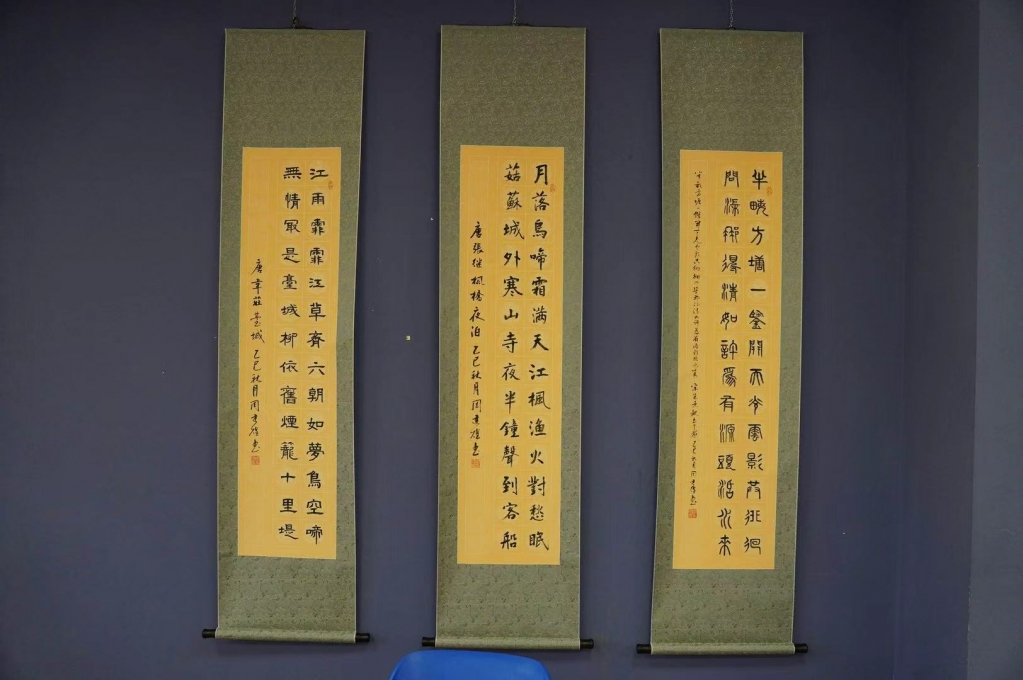 半畝方塘一鑒開天光雲影共徘徊
問渠那得清如許為有源頭活水來
乙巳秋月周
月落烏啼霜满天江楓漁火對愁眠
菇蘇城外寒山寺夜半鐘聲到客船
唐張继楓橋夜泊 乙巳秋月周
江雨霏霏江草齊六朝如夢鳥空啼
無情最是臺城柳依舊煙籠十里堤
唐韋莊臺城 乙巳秋月周